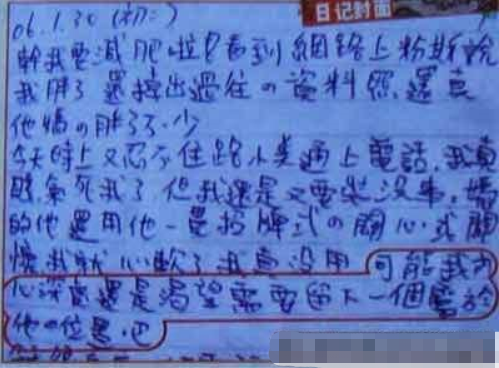 日记封面
06.1.30(初二)
幹我要減肥啦!看到網路上粉斯說
我胖了還擠出過往の資料照.還真
他媽の胖了不少
今天時上又忍不住跟小美通上電話.我真
氣死我了但我還是又要裝沒事.媽
的他還用他一貫招牌式の關心.式關
懷我就心軟了我真沒用 可能我內
心深處還是渴望需要留下一個屬於
他の位置.吧